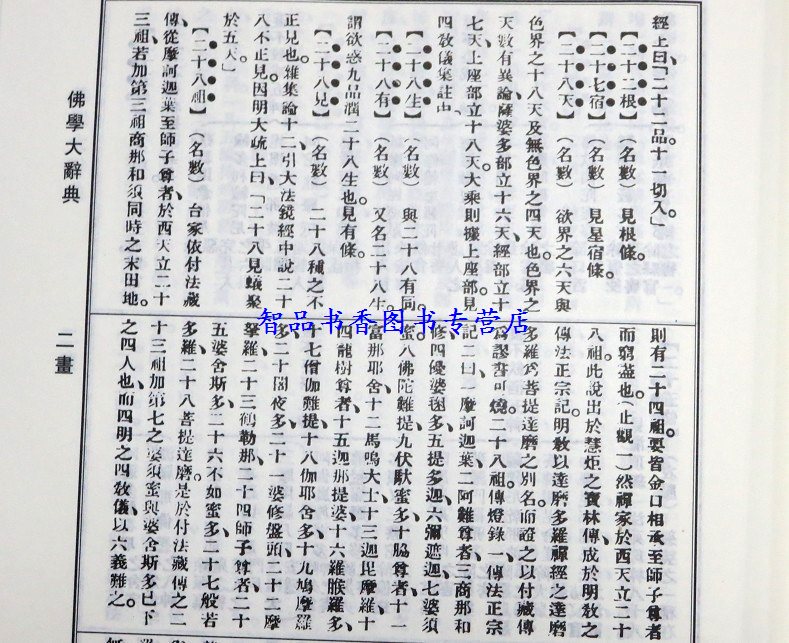 經上曰「二十二品。十一切入。」
【二十二根】（名數）見根條。
【二十七宿】（名數）見星宿條。
【二十八天】（名數）欲界之六天與
色界之十八天及無色界之四天也。色界之
天數有異論薩婆多部立十六天經部立十
七天上座部立十八天大乘則據上座部。見
四教儀集註中。
【二十八生】（名數）與二十八有同。
【二十八有】（名數）又名二十八生。
謂欲惑九品潤二十八生也。見有條。
【二十八見】（名數）二十八種之不
正見也。雜集論十二引大法鏡經中說二十
八不正見。因明大疏上曰「二十八見蟻聚
於五天」
【二十八祖】（名數）台家依付法藏
傳從摩訶迦葉至師子尊者於西天立二十
三祖若加第三祖商那和須同時之末田地。
則有二十四祖。要皆金口相承至師子尊者
而窮盡也。（止觀一）然禪家於西天立二十
八祖。此說出於慧炬之寶林傳成於明教之
傳法正宗記。明教以達磨多羅禪經之達磨
多羅爲菩提達磨之別名。而證之以付藏傳
爲謬書可燒。二十八祖。傳燈錄一傳法正宗
記二曰一摩訶迦葉、二阿難尊者、三商那和
修四優婆毱多五提多迦六彌遮迦七婆須
蜜八佛陀難提九伏馱蜜多十脇尊者十一
富那耶舍十二馬鳴大士十三迦毘摩羅十
四龍樹尊者十五迦那提婆十六羅睺羅多
十七僧伽難提十八伽耶舍多十九鳩摩羅
多二十闍夜多二十一婆修盤頭二十二摩
拏羅二十三鶴勒那二十四師子尊者二十
五婆舍斯多二十六不如蜜多二十七般若
多羅二十八菩提達磨是於付法藏傳之二
十三祖加第七之婆須蜜與婆舍斯多已下
之四人也。而四明之四教儀以六義難之。
佛學大辭典
二畫
智品书香图书专营店